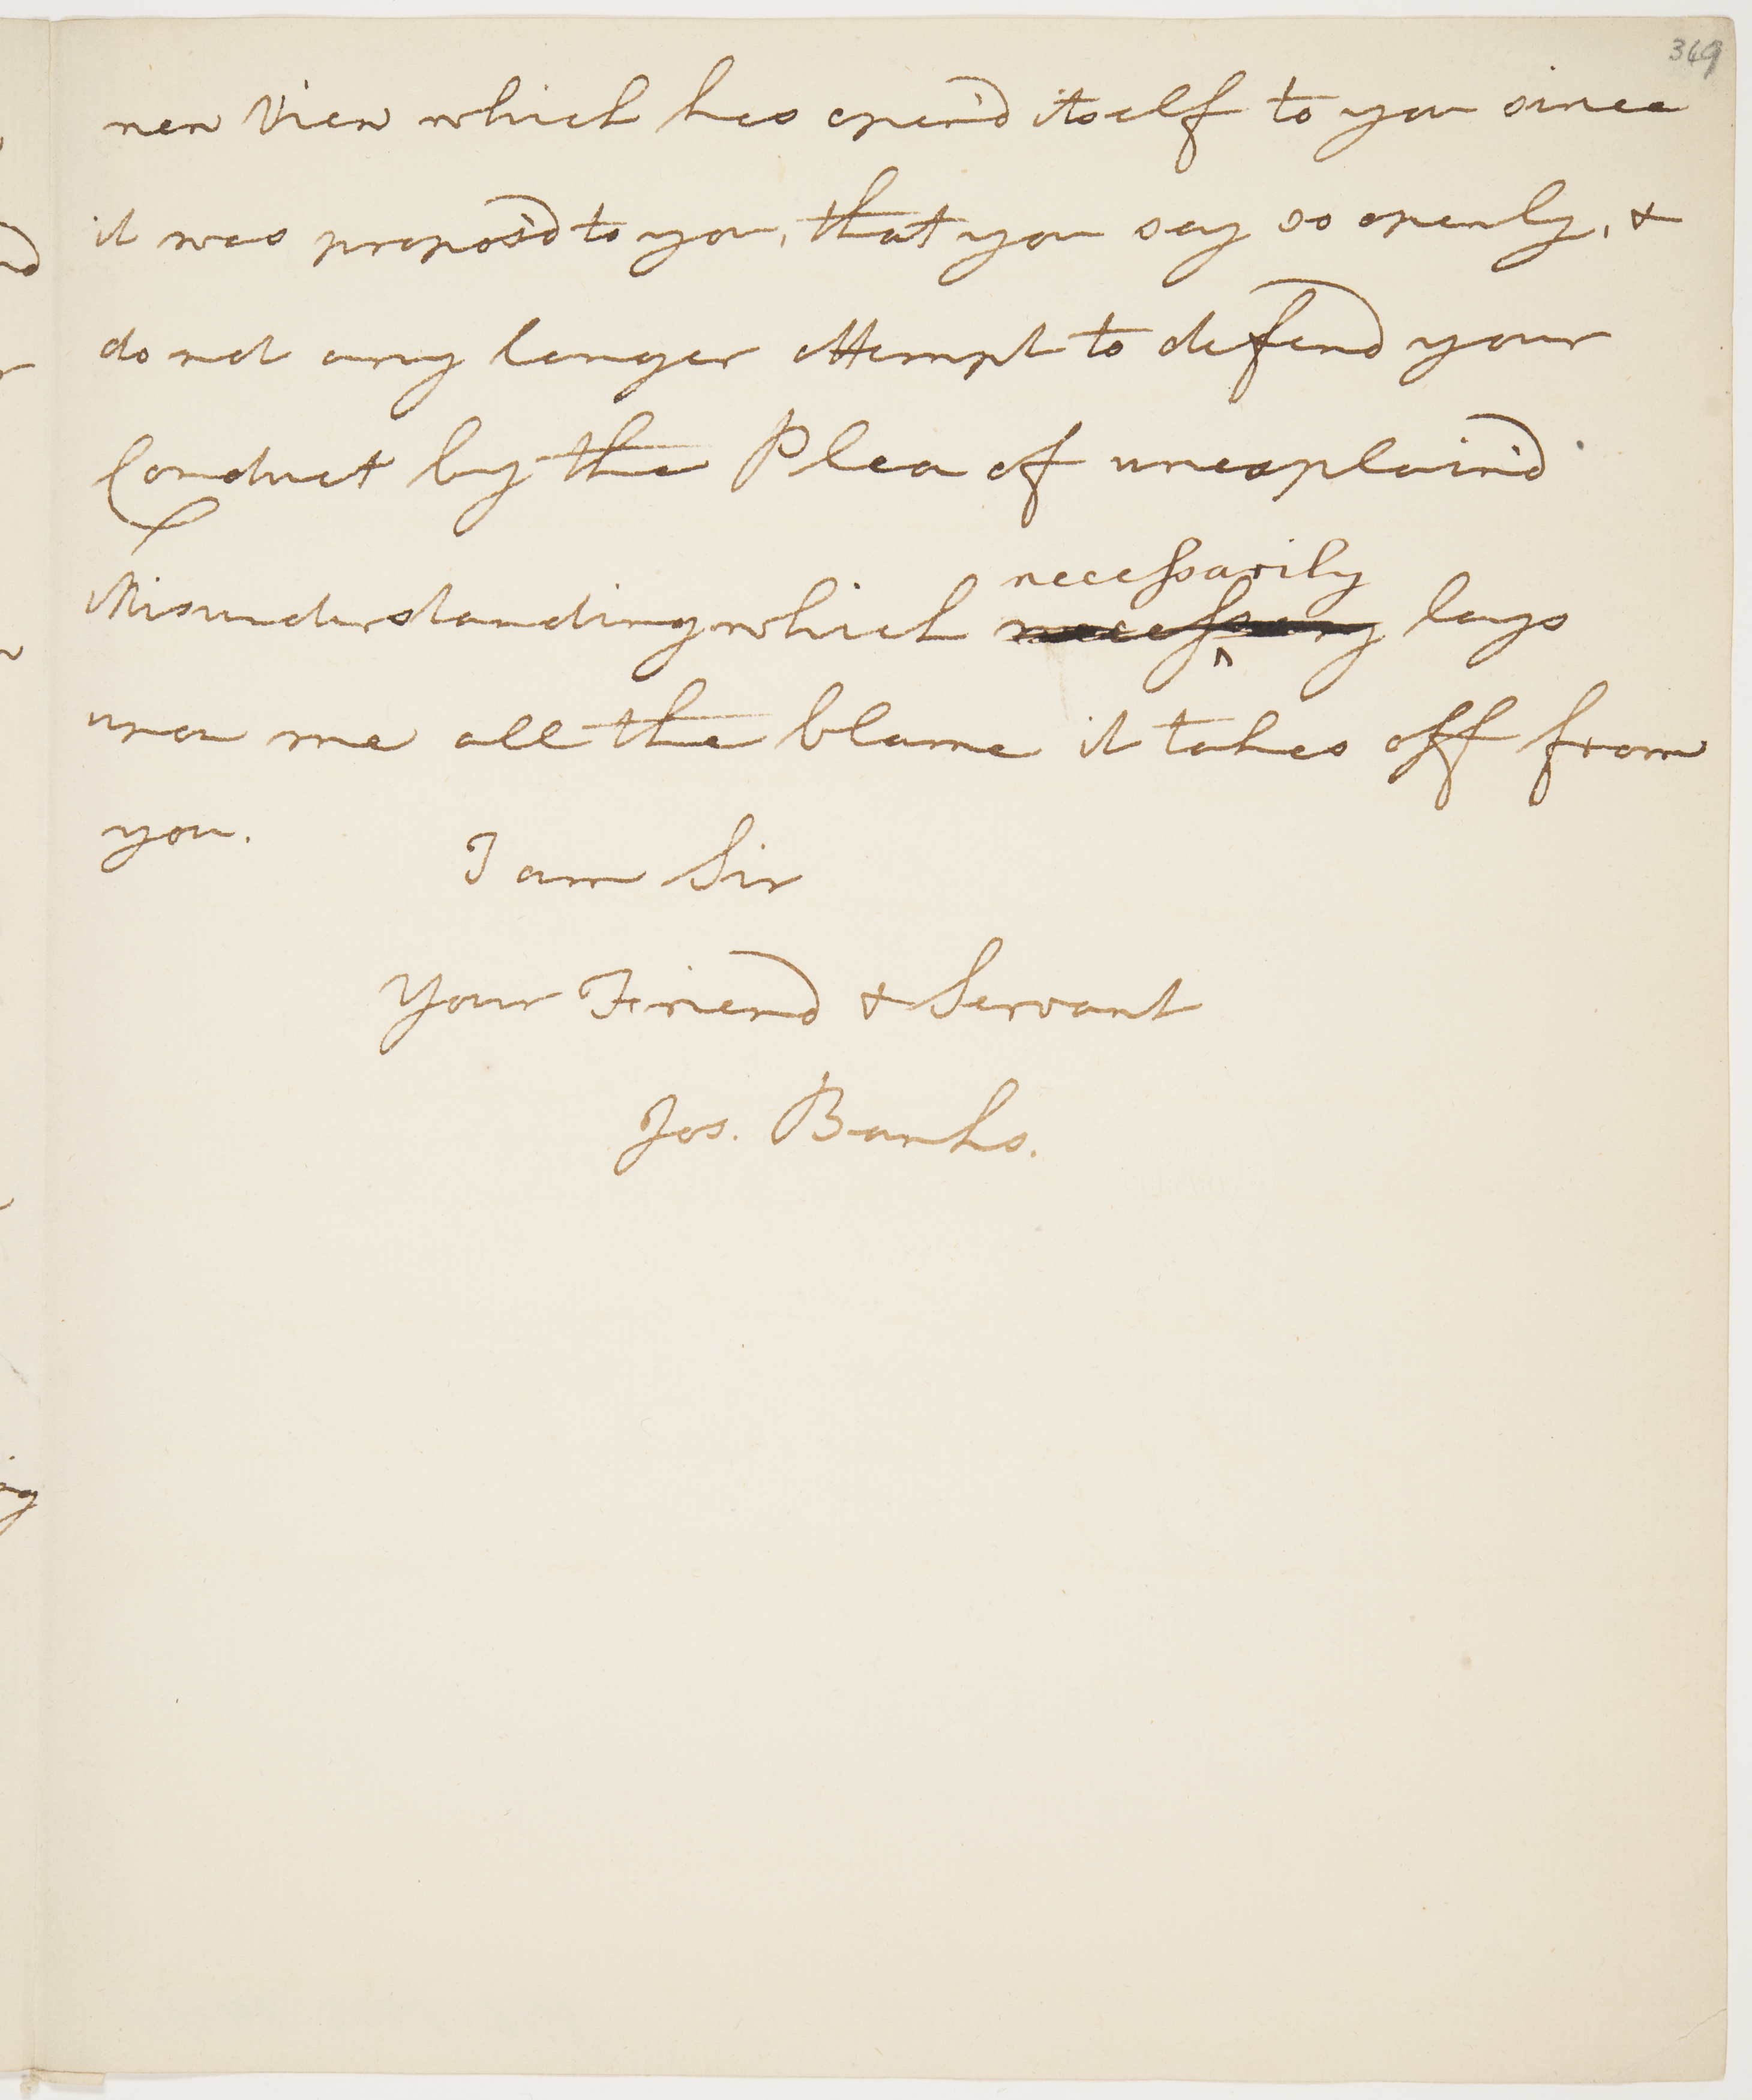 369
new View which has open'd itself to you since
it was propos'd to you, that you say so openly, &
do not any longer attempt to defend your
Conduct by the Plea of unexplain'd
necessarily
Misunderstanding which necessary lays
upon me all the blame it takes off from
you.
I am Sir
Your Friend & Servant
Jos. Banks.